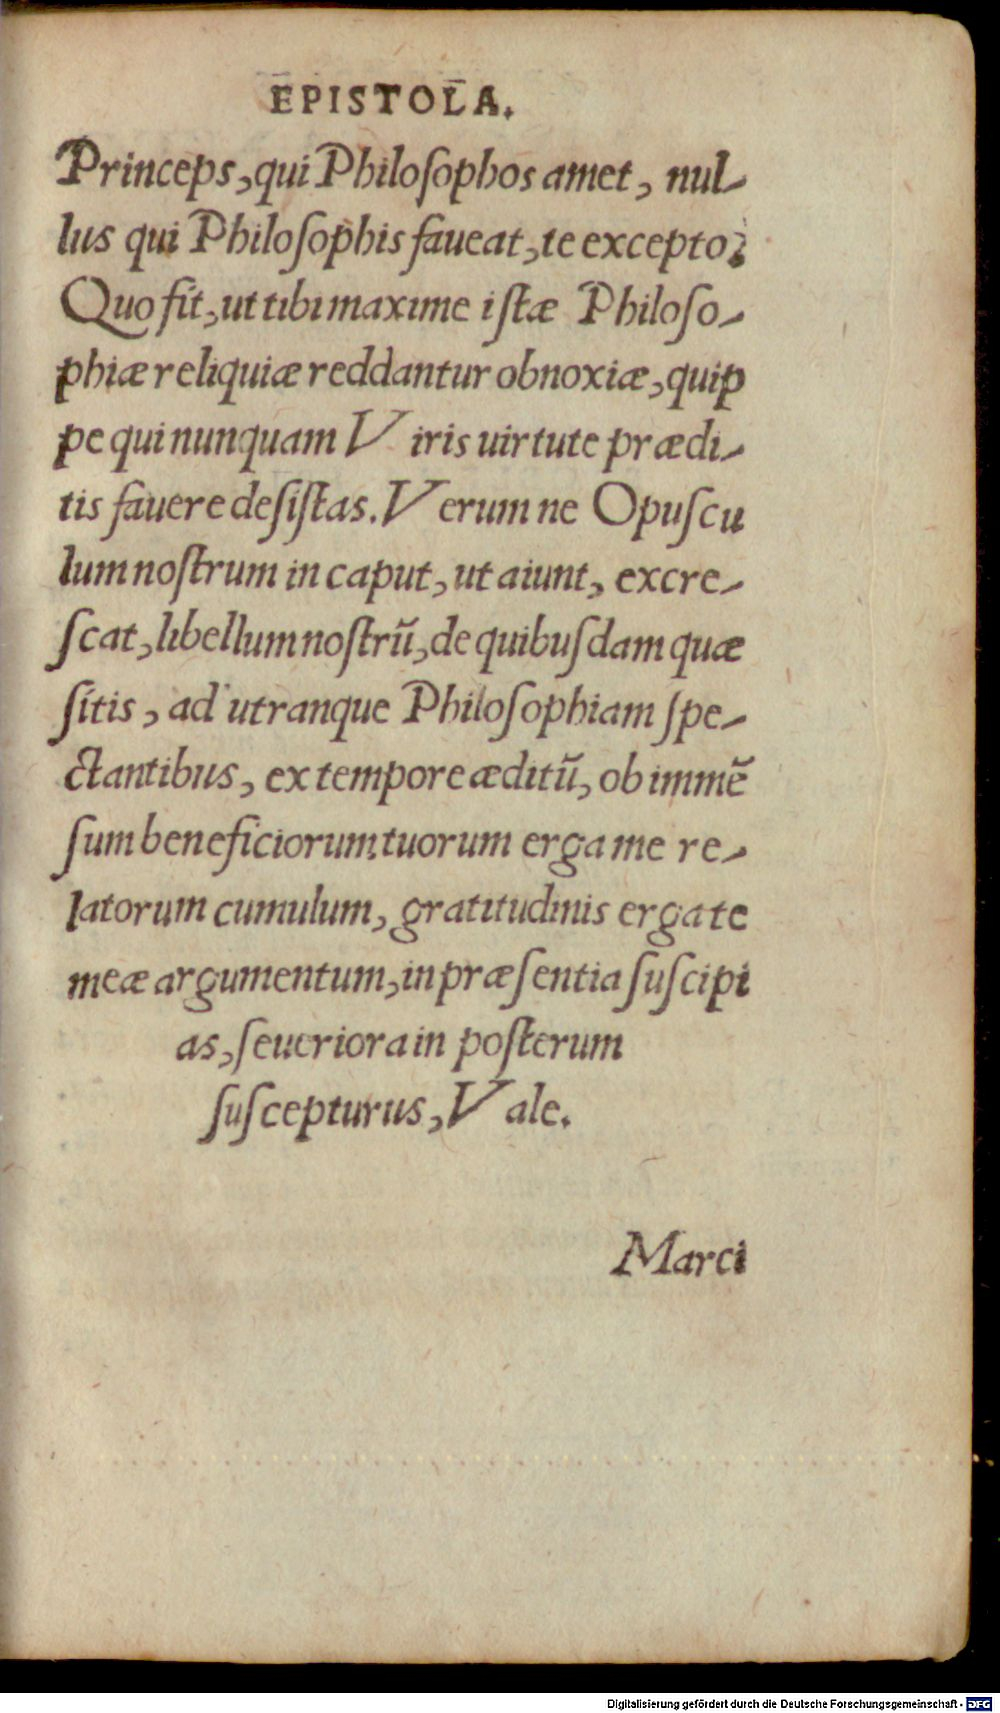 EPISTOLA.
Princeps, qui Philoſophos amet, nul-
lus qui Philoſophis faueat, te excepto?
Quo fit, ut tibi maxime iſtæ Philoſo-
phiæ reliquiæ reddantur obnoxiæ, quip
pe qui nunquam Viris uirtute prædi-
tis fauere deſiſtas. Verum ne Opuſcu
lum noſtrum in caput, ut aiunt, excre-
ſcat, libellum noſtrũ, de quibuſdam quæ
ſitis, ad utranque Philoſophiam ſpe-
ctantibus, ex tempore æditũ, ob immẽ
ſum beneficiorum tuorum erga me re-
latorum cumulum, gratitudinis erga te
meæ argumentum, in præſentia ſuſcipi
as, ſeueriora in poſterum
ſuſcepturus, Vale.
Marci
Digitalisierung gefördert durch die Deutsche Forschungsgemeinschaft - DFG